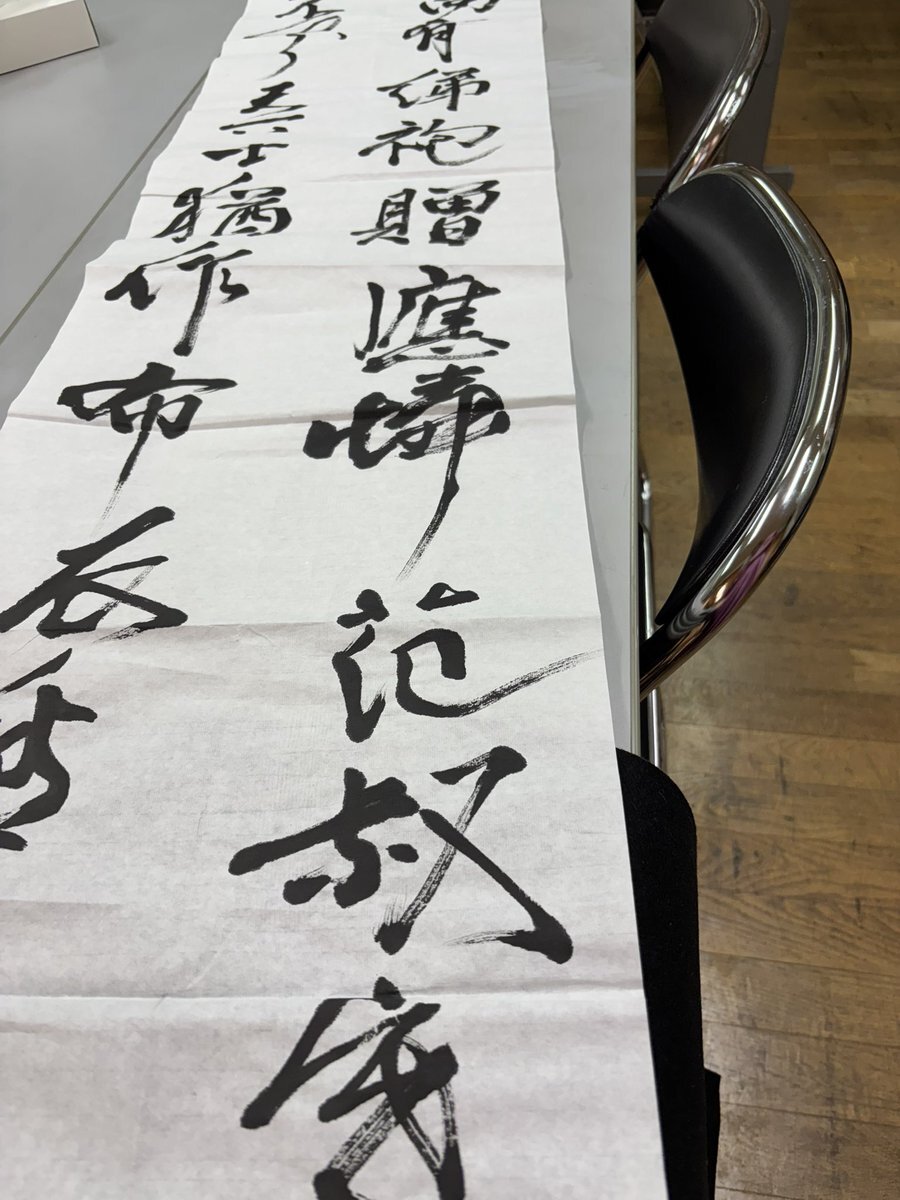 尚有綈袍贈應憐范叔寒
知天下士猶作布衣看